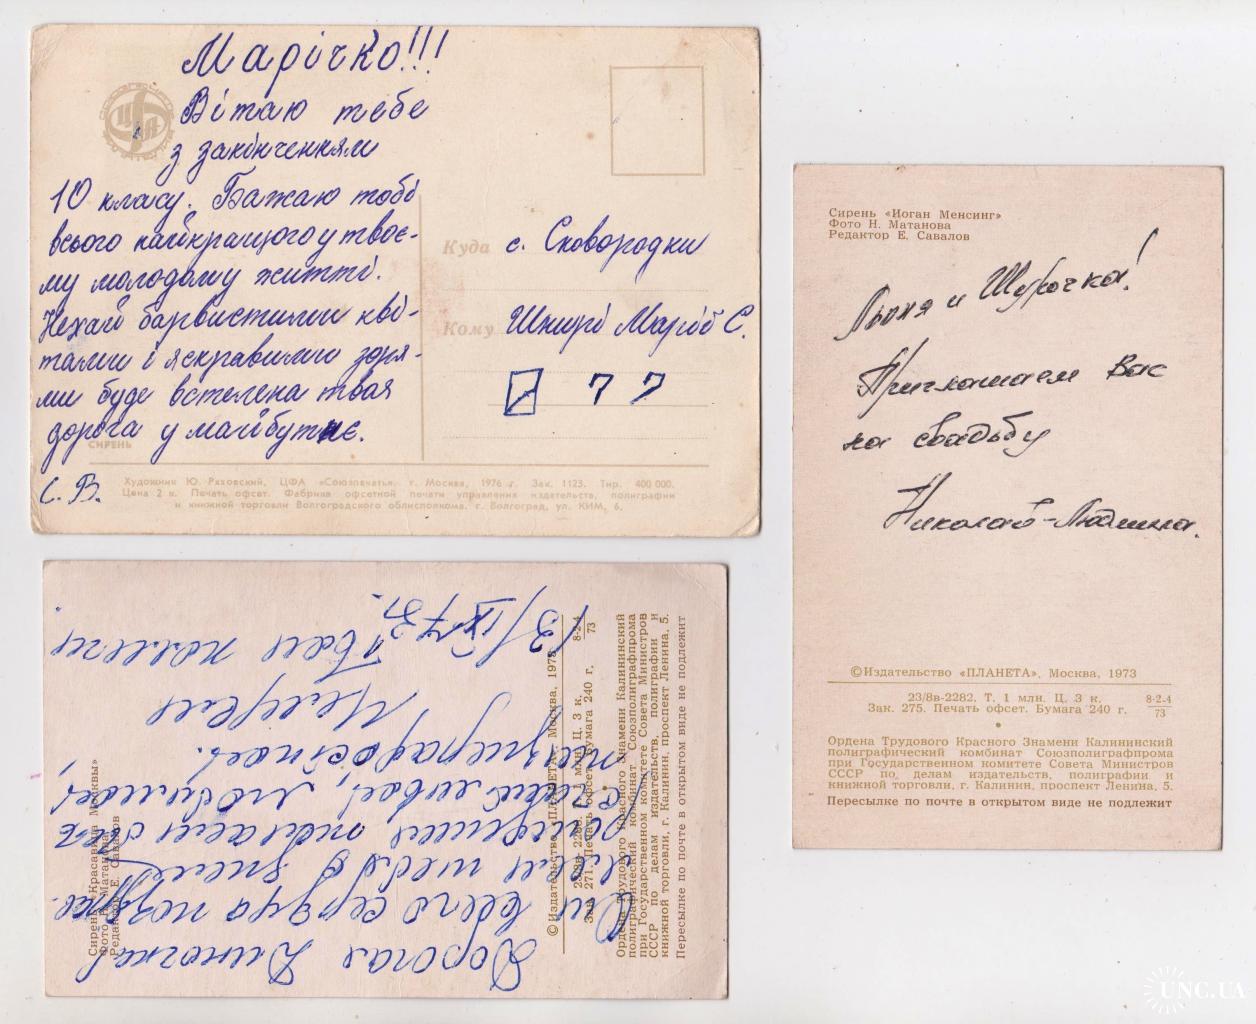 Марічко!!!
Вітаю тебе
з закінченням
10 класу. Бажаю тобі
всього найкращого у твоє-
му молодому житті.
Нехай барвистими кві-
тами і яскравими зоря-
ми буде встелена твоя
дорога у майбутнє.
С. В.
Куда с. Сковородки
Кому Шкирі Марії С.
77
СИРЕНЬ
Художник Ю. Ряховский, ЦФА «Союзпечать». г. Москва, 1976 г. Зак. 1123. Тир. 400 000.
Цена 2 к. Печать офсет. Фабрика офсетной печати управления издательств, полиграфии
и книжной торговли Волгоградского облисполкома. г. Волгоград, ул. КИМ, 6.
Сирень «Иоган Менсинг»
Фото Н. Матанова
Редактор Е. Савалов
Лёня и Шурочка!
Приглашаем Вас
на свадьбу
Николай-Людмила.
©Издательство «ПЛАНЕТА», Москва, 1973
23/8в-2282. Т. 1 млн. Ц. 3 к.
Зак. 275. Печать офсет. Бумага 240 г.
8-2-4
73
Ордена Трудового Красного Знамени Калининский
полиграфический комбинат Союзполиграфпрома
при Государственном комитете Совета Министров
СССР по делам издательств, полиграфии и
книжной торговли, г. Калинин, проспект Ленина, 5.
Пересылке по почте в открытом виде не подлежит
Дорогая Диночка!
От всего сердца поздрав-
ляем тебя
желаем быть
счастливой, любимой,
Твои коллеги.
13/IX-73г.
Сирень «Красавица Москвы»
Фото Н. Матанова
Редактор Е. Савалов
©Издательство «ПЛАНЕТА», Москва, 1973
23/8в-2280. Т. 1 млн. Ц. 3 к.
Зак. 271. Печать офсет. Бумага 240 г.
8-2-4
73
Ордена Трудового Красного Знамени Калининский
полиграфический комбинат Союзполиграфпрома
при Государственном комитете Совета Министров
СССР по делам издательств, полиграфии и
книжной торговли, г. Калинин, проспект Ленина, 5.
Пересылке по почте в открытом виде не подлежит
UNC.UA